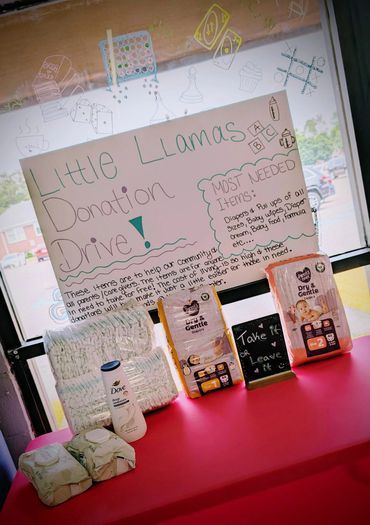 Little Llamas
Donation
Drive!
MOST NEEDED
ITEMS:
Diapers & Pull ups of all
Sizes, Baby wipes, Diaper
Cream, Baby food, formula
etc...
A
B C
These items are to help our community &
all parents/caregivers. The items are for anyone
in need to take for free. The cost of living is so high & these
donations will make it a little easier for those in need.
Dry &
Gentle
Dry &
Gentle
2
Take it
or
Leave it
Dove